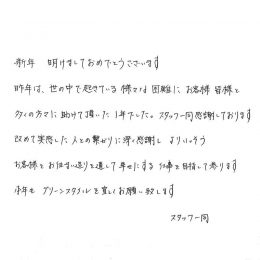 新年 明けましておめでとうございます
昨年は、世の中で起きている様々な困難にお客様皆様と
多くの方々に助けて頂いた1年でした。スタッフ一同感謝しております
改めて実感した人との繋がりに深く感謝し よりいっそう
お客様とお住まい造りを通して幸せにする仕事を目指して参ります
今年も グリーンスタイルを宜しくお願い致します
スタッフ一同